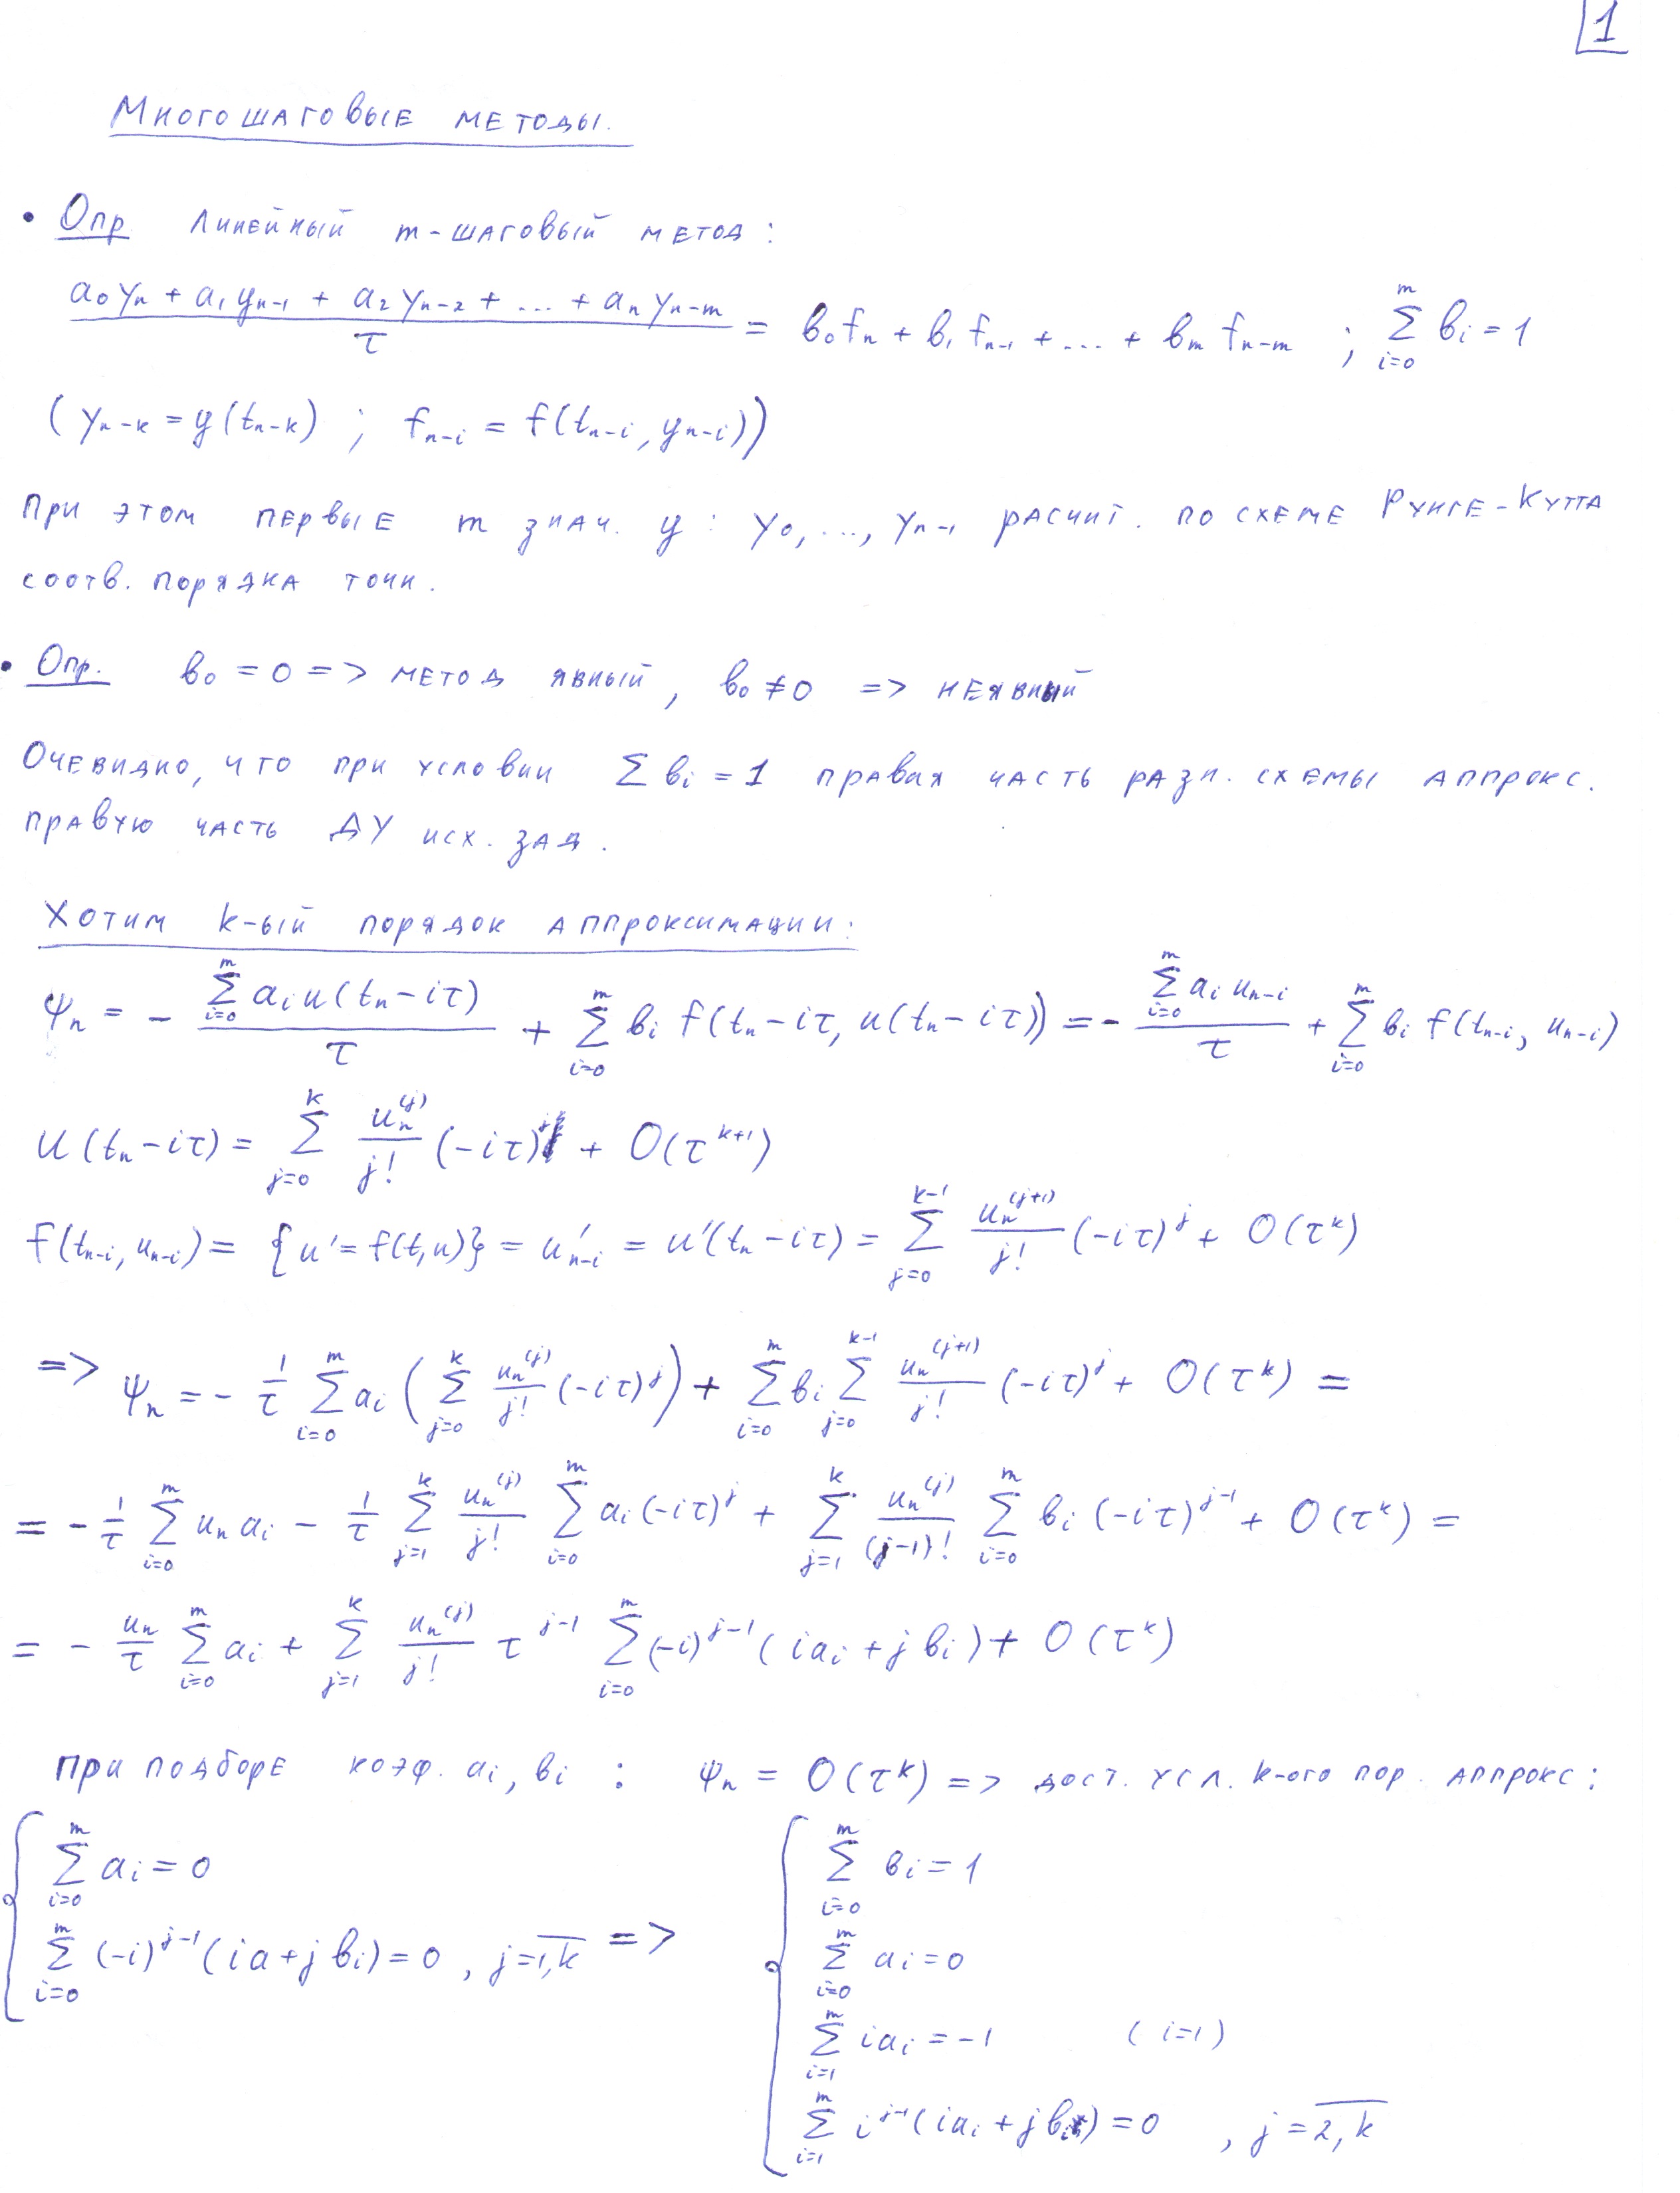 1
Многошаговые методы.
• Опр линейный m-шаговый метод:
(a₀yₙ + a₁yₙ₋₁ + a₂yₙ₋₂ + ... + aₙyₙ₋ₘ)/τ = b₀fₙ + b₁fₙ₋₁ + ... + bₘfₙ₋ₘ ; ∑_{i=0}^{m} bᵢ = 1
(yₙ₋ₖ = y(tₙ₋ₖ) ; fₙ₋ᵢ = f(tₙ₋ᵢ, yₙ₋ᵢ))
При этом первые m знач. y : y₀, ..., yₙ₋₁ расчит. по схеме Рунге-Кутта
соотв. порядка точн.
• Опр. b₀ = 0 => метод явный, b₀ ≠ 0 => неявный
Очевидно, что при условии ∑ bᵢ = 1 правая часть разн. схемы аппрокс.
правую часть ДУ исх. зад.
Хотим k-ый порядок аппроксимации:
ψₙ = - (∑_{i=0}^{m} aᵢ u(tₙ - iτ))/τ + ∑_{i=0}^{m} bᵢ f(tₙ - iτ, u(tₙ - iτ)) = - (∑_{i=0}^{m} aᵢ uₙ₋ᵢ)/τ + ∑_{i=0}^{m} bᵢ f(tₙ₋ᵢ, uₙ₋ᵢ)
u(tₙ - iτ) = ∑_{j=0}^{k} uₙ^{(j)}/j! (-iτ)^j + O(τ^{k+1})
f(tₙ₋ᵢ, uₙ₋ᵢ) = {u' = f(t,u)} = u'ₙ₋ᵢ = u'(tₙ - iτ) = ∑_{j=0}^{k-1} uₙ^{(j+1)}/j! (-iτ)^j + O(τ^k)
=> ψₙ = - 1/τ ∑_{i=0}^{m} aᵢ (∑_{j=0}^{k} uₙ^{(j)}/j! (-iτ)^j) + ∑_{i=0}^{m} bᵢ ∑_{j=0}^{k-1} uₙ^{(j+1)}/j! (-iτ)^j + O(τ^k) =
= - 1/τ ∑_{i=0}^{m} uₙ aᵢ - 1/τ ∑_{j=1}^{k} uₙ^{(j)}/j! ∑_{i=0}^{m} aᵢ (-iτ)^j + ∑_{j=1}^{k} uₙ^{(j)}/(j-1)! ∑_{i=0}^{m} bᵢ (-iτ)^{j-1} + O(τ^k) =
= - uₙ/τ ∑_{i=0}^{m} aᵢ + ∑_{j=1}^{k} uₙ^{(j)}/j! τ^{j-1} ∑_{i=0}^{m} (-i)^{j-1} (iaᵢ + jbᵢ) + O(τ^k)
При подборе коэф. aᵢ, bᵢ : ψₙ = O(τ^k) => дост. усл. k-ого пор. аппрокс:
∑_{i=0}^{m} aᵢ = 0
∑_{i=0}^{m} (-i)^{j-1} (ia + jbᵢ) = 0 , j = \overline{1,k} =>
∑_{i=0}^{m} bᵢ = 1
∑_{i=0}^{m} aᵢ = 0
∑_{i=1}^{m} iaᵢ = -1 (i=1)
∑_{i=1}^{m} i^{j-1} (iaᵢ + jbᵢ) = 0 , j = \overline{2,k}